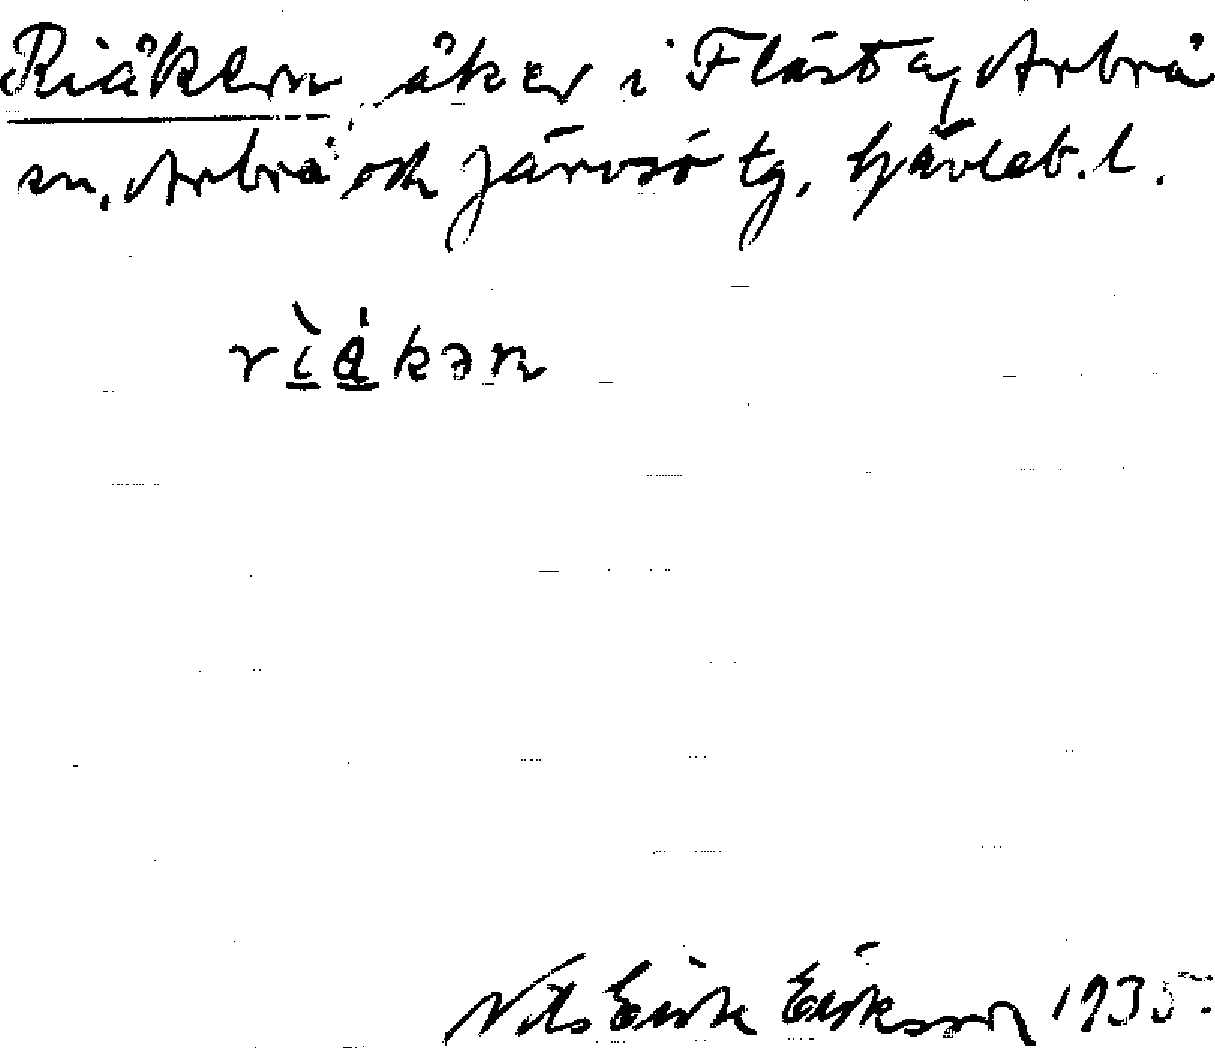 Riåkern, åker i Flästa, Arbrå
sn, Arbrå och Järvsö tg, Gävleb. l.
rìa̍kən
Nils Erik Eriksson 1935.